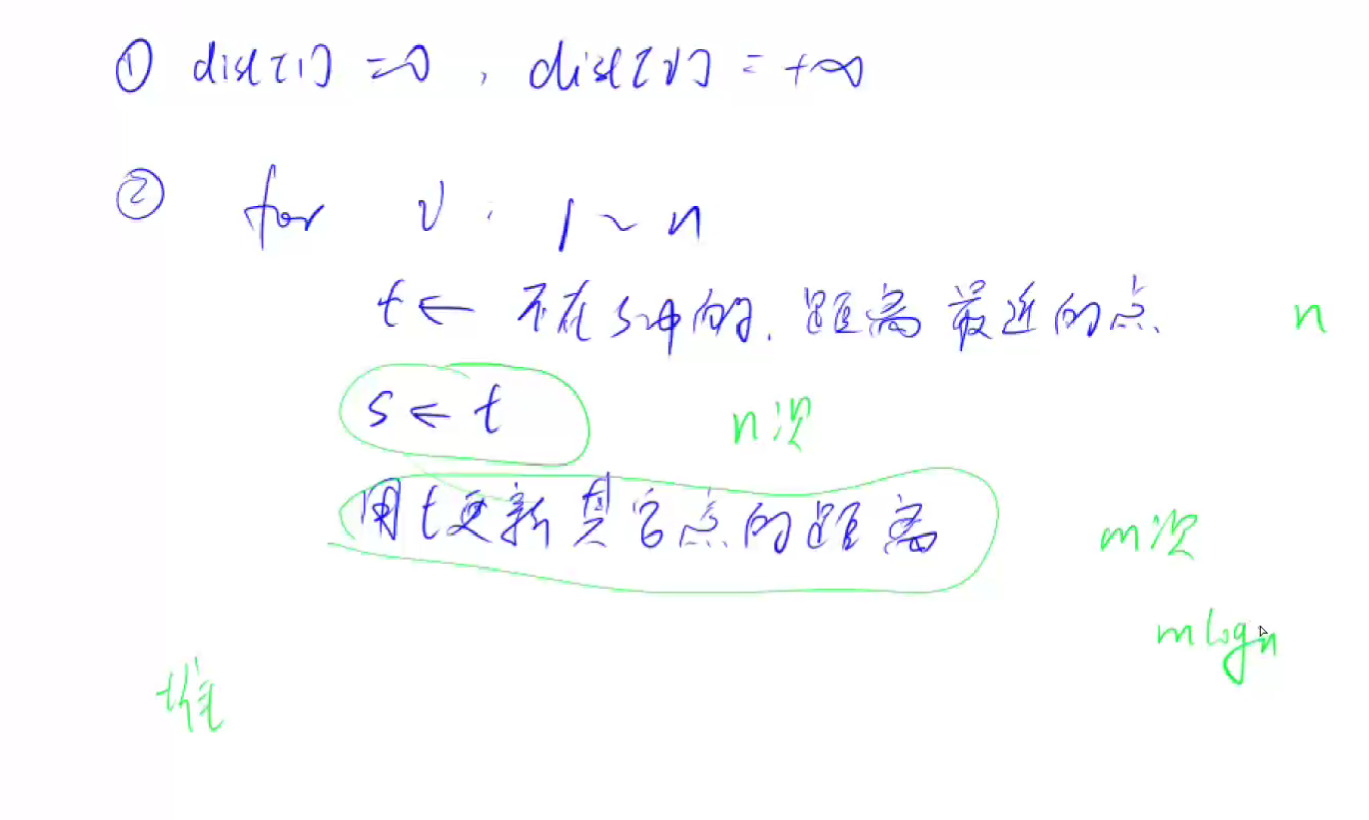 ① dist[1] = 0, dist[v] = +∞
② for v: 1 ~ n
t ← 不在s中的, 距离最近的点. n
s ← t n次
用t更新其它点的距离 m次
m log n
堆